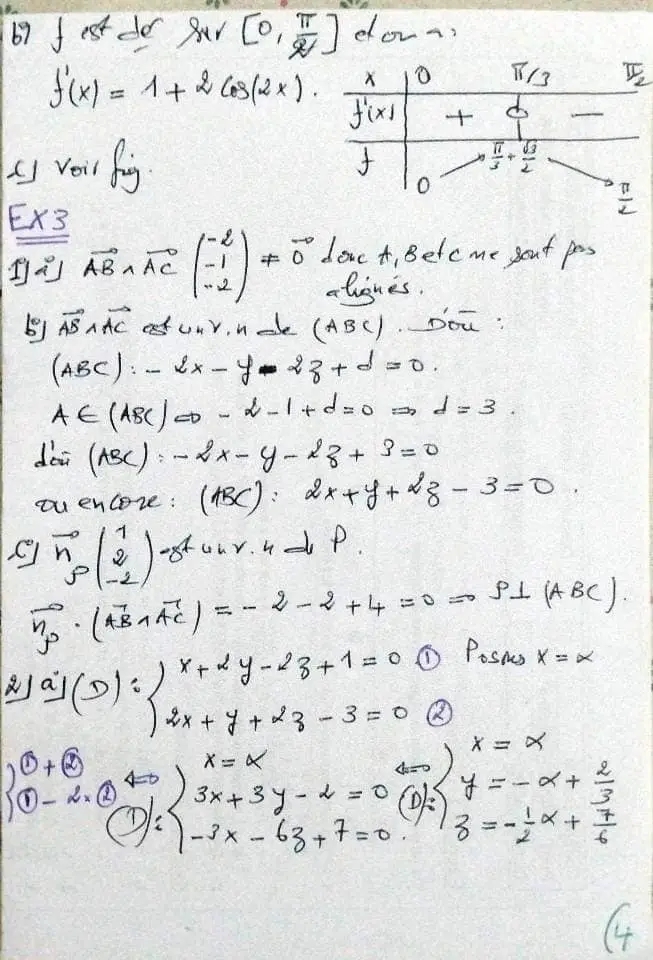 b) f est der sur [0, π/2] et on a :
f'(x) = 1 + 2 cos(2x).
x | 0 π/3 π/2
f'(x) | + 0 −
f | 0 π/3 + √3/2 π/2
c) Voir fig.
EX3
1) a) AB ∧ AC (-2 -1 -2) ≠ 0 donc A, B et C ne sont pas
alignés.
b) AB ∧ AC est un v.n de (ABC). D'où :
(ABC) : - 2x - y - 2z + d = 0.
A ∈ (ABC) ⇔ - 2 - 1 + d = 0 ⇒ d = 3.
d'où (ABC) : - 2x - y - 2z + 3 = 0
ou encore : (ABC) : 2x + y + 2z - 3 = 0.
c) n_P (1 2 -2) est un v.n de P.
n_P . (AB ∧ AC) = - 2 - 2 + 4 = 0 ⇒ P ⊥ (ABC).
2) a) (D) : { x + 2y - 2z + 1 = 0 ① Posons x = α
2x + y + 2z - 3 = 0 ②
{ ① + ② ⇔ (D) : { x = α ⇔ (D) : { x = α
① - 2×② 3x + 3y - 2 = 0 y = - α + 2/3
-3x - 6z + 7 = 0. z = - 1/2 α + 7/6
(4